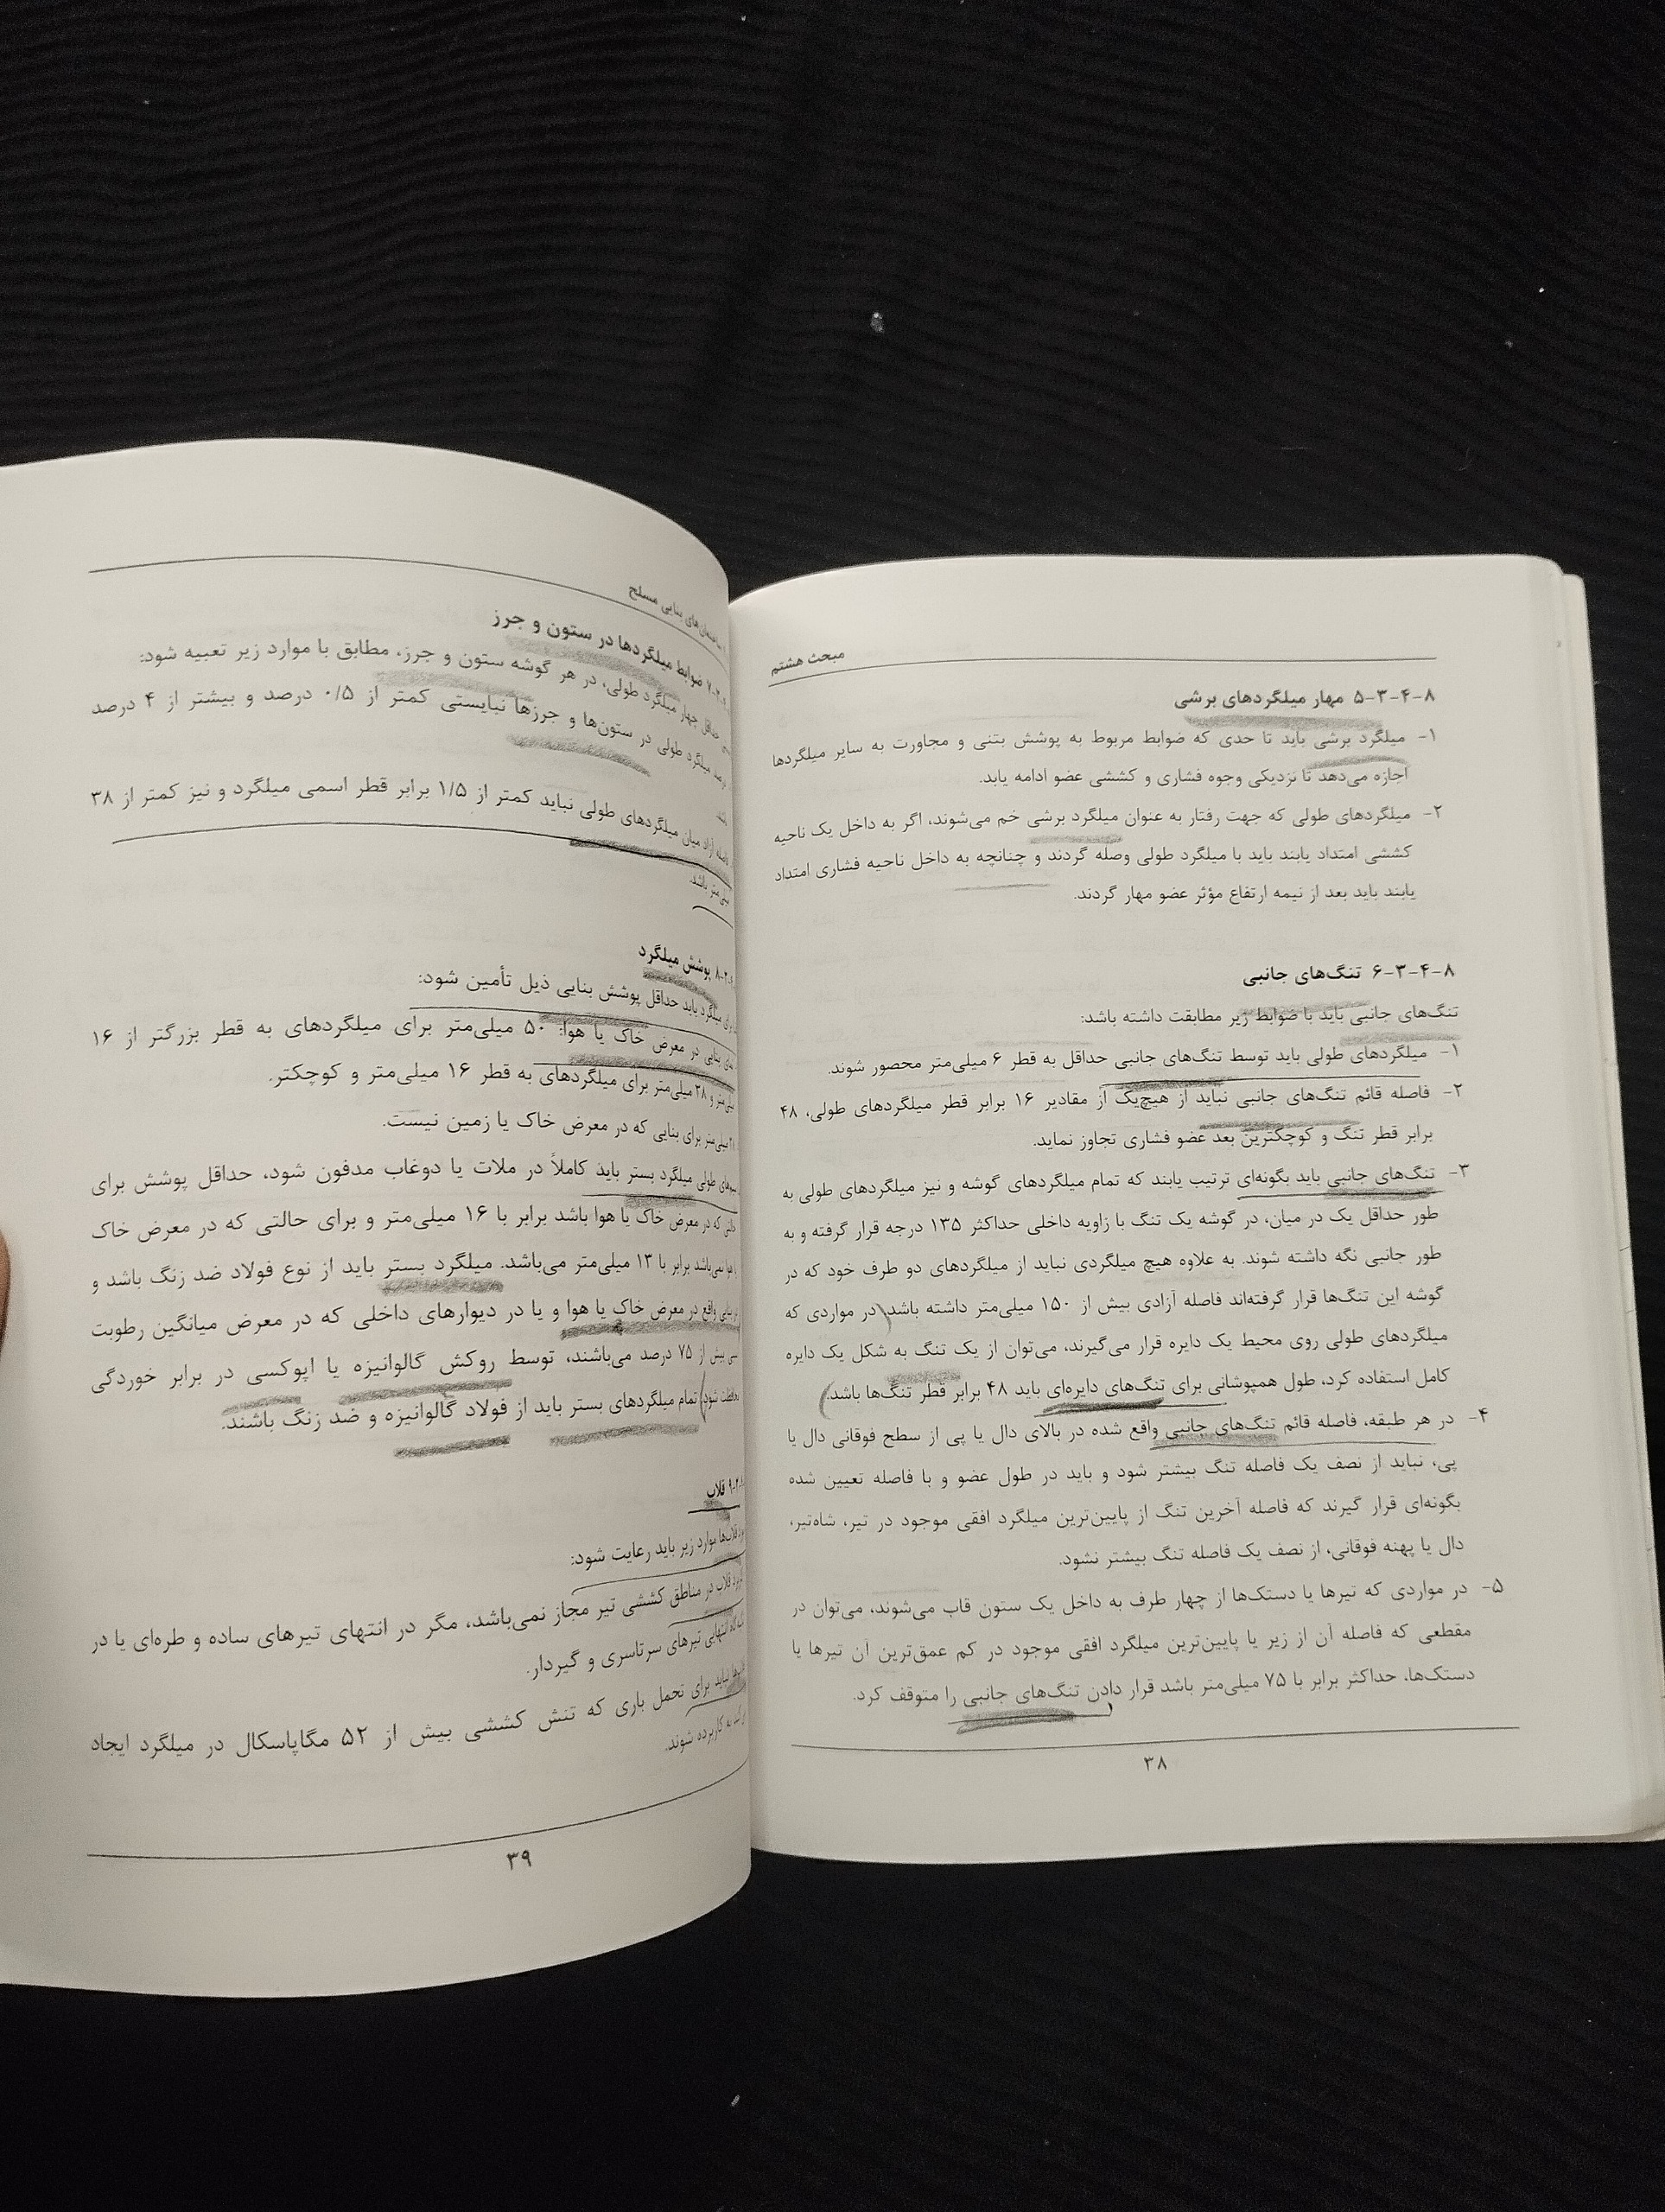 مبحث هشتم
۸-۴-۳-۵ مهار میلگردهای برشی
۱- میلگرد برشی باید تا حدی که ضوابط مربوط به پوشش بتنی و مجاورت به سایر میلگردها
اجازه می‌دهد تا نزدیکی وجوه فشاری و کششی عضو ادامه یابد.
۲- میلگردهای طولی که جهت رفتار به عنوان میلگرد برشی خم می‌شوند، اگر به داخل یک ناحیه
کششی امتداد یابند باید با میلگرد طولی وصله گردند و چنانچه به داخل ناحیه فشاری امتداد
یابند باید بعد از نیمه ارتفاع مؤثر عضو مهار گردند.
۸-۴-۳-۶ تنگ‌های جانبی
تنگ‌های جانبی باید با ضوابط زیر مطابقت داشته باشد:
۱- میلگردهای طولی باید توسط تنگ‌های جانبی حداقل به قطر ۶ میلی‌متر محصور شوند.
۲- فاصله قائم تنگ‌های جانبی نباید از هیچ‌یک از مقادیر ۱۶ برابر قطر میلگردهای طولی، ۴۸
برابر قطر تنگ و کوچکترین بعد عضو فشاری تجاوز نماید.
۳- تنگ‌های جانبی باید بگونه‌ای ترتیب یابند که تمام میلگردهای گوشه و نیز میلگردهای طولی به
طور حداقل یک در میان، در گوشه یک تنگ با زاویه داخلی حداکثر ۱۳۵ درجه قرار گرفته و به
طور جانبی نگه داشته شوند. به علاوه هیچ میلگردی نباید از میلگردهای دو طرف خود که در
گوشه این تنگ‌ها قرار گرفته‌اند فاصله آزادی بیش از ۱۵۰ میلی‌متر داشته باشد. در مواردی که
میلگردهای طولی روی محیط یک دایره قرار می‌گیرند، می‌توان از یک تنگ به شکل یک دایره
کامل استفاده کرد، طول همپوشانی برای تنگ‌های دایره‌ای باید ۴۸ برابر قطر تنگ‌ها باشد.
۴- در هر طبقه، فاصله قائم تنگ‌های جانبی واقع شده در بالای دال یا پی از سطح فوقانی دال یا
پی، نباید از نصف یک فاصله تنگ بیشتر شود و باید در طول عضو و با فاصله تعیین شده
بگونه‌ای قرار گیرند که فاصله آخرین تنگ از پایین‌ترین میلگرد افقی موجود در تیر، شاه‌تیر،
دال یا پهنه فوقانی، از نصف یک فاصله تنگ بیشتر نشود.
۵- در مواردی که تیرها یا دستک‌ها از چهار طرف به داخل یک ستون قاب می‌شوند، می‌توان در
مقطعی که فاصله آن از زیر یا پایین‌ترین میلگرد افقی موجود در کم عمق‌ترین آن تیرها یا
دستک‌ها، حداکثر برابر با ۷۵ میلی‌متر باشد قرار دادن تنگ‌های جانبی را متوقف کرد.
۳۸
ساختمان‌های بنایی مسلح
ضوابط میلگردها در ستون و جرز
حداقل چهار میلگرد طولی، در هر گوشه ستون و جرز، مطابق با موارد زیر تعبیه شود:
درصد میلگرد طولی در ستون‌ها و جرزها نبایستی کمتر از ۰/۵ درصد و بیشتر از ۴ درصد
باشد.
فاصله آزاد میان میلگردهای طولی نباید کمتر از ۱/۵ برابر قطر اسمی میلگرد و نیز کمتر از ۳۸
میلی‌متر باشد.
پوشش میلگرد
برای میلگرد باید حداقل پوشش بنایی ذیل تأمین شود:
بنایی در معرض خاک یا هوا: ۵۰ میلی‌متر برای میلگردهای به قطر بزرگتر از ۱۶
میلی‌متر و ۳۸ میلی‌متر برای میلگردهای به قطر ۱۶ میلی‌متر و کوچکتر.
میلی‌متر برای بنایی که در معرض خاک یا زمین نیست.
طولی میلگرد بستر باید کاملاً در ملات یا دوغاب مدفون شود، حداقل پوشش برای
حالتی که در معرض خاک یا هوا باشد برابر با ۱۶ میلی‌متر و برای حالتی که در معرض خاک
یا هوا نمی‌باشد برابر با ۱۳ میلی‌متر می‌باشد. میلگرد بستر باید از نوع فولاد ضد زنگ باشد و
بنایی واقع در معرض خاک یا هوا و یا در دیوارهای داخلی که در معرض میانگین رطوبت
بیش از ۷۵ درصد می‌باشند، توسط روکش گالوانیزه یا اپوکسی در برابر خوردگی
محافظت شود. تمام میلگردهای بستر باید از فولاد گالوانیزه و ضد زنگ باشند.
قلاب
قلاب‌ها موارد زیر باید رعایت شود:
قلاب در مناطق کششی تیر مجاز نمی‌باشد، مگر در انتهای تیرهای ساده و طره‌ای یا در
انتهایی تیرهای سرتاسری و گیردار.
نباید برای تحمل باری که تنش کششی بیش از ۵۲ مگاپاسکال در میلگرد ایجاد
به کار برده شوند.
۳۹